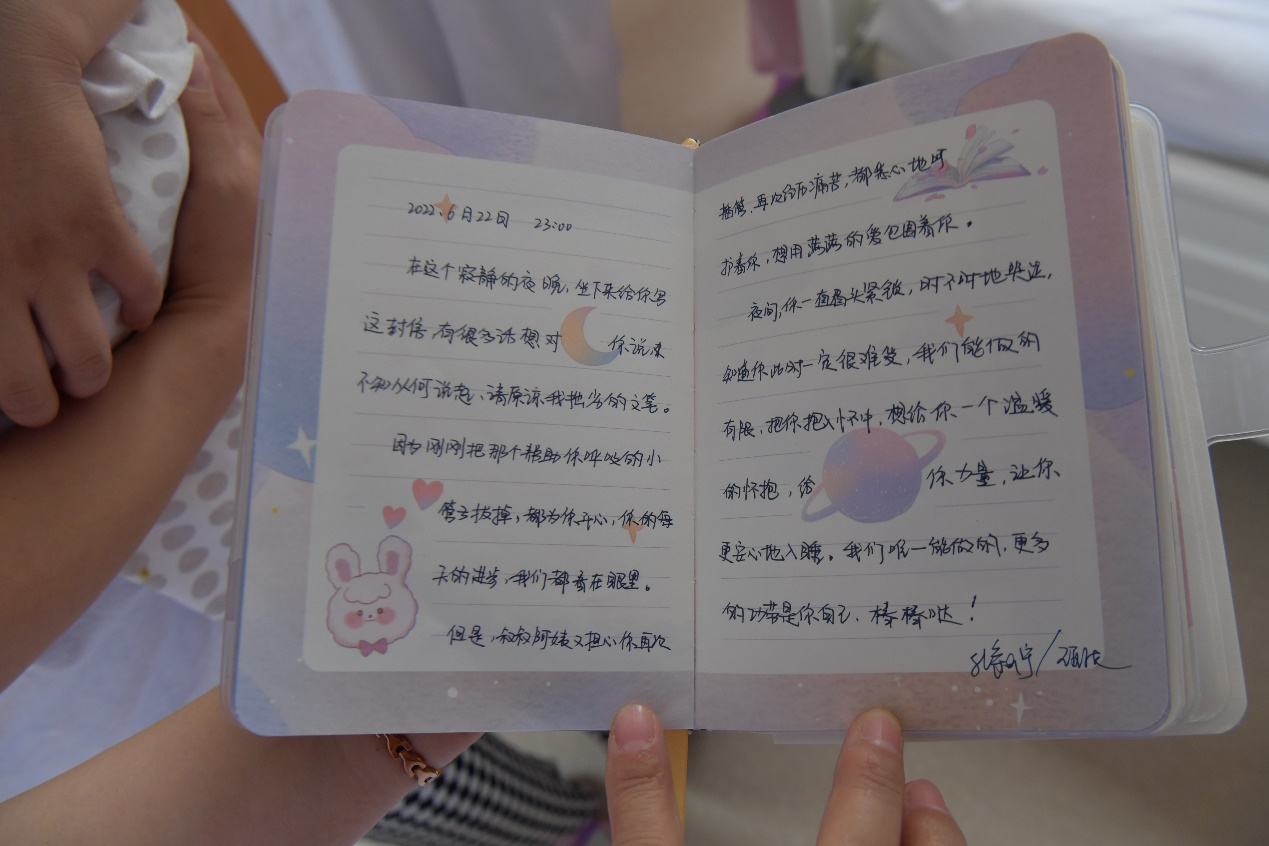 2022.6月22日 23:00
在这个寂静的夜晚,坐下来给你写
这封信,有很多话想对你说,又
不知从何说起、请原谅我拙劣的文笔。
因为刚刚把那个帮助你呼吸的小
管子拔掉,都为你开心,你的每
天的进步,我们都看在眼里。
但是,叔叔阿姨又担心你再次
插管、再次经历痛苦,都悉心地呵
护着你,想用满满的爱包围着你。
夜间,你一直眉头紧皱,时不时地哭泣,
知道你此时一定很难受,我们能做的
有限,把你抱入怀中,想给你一个温暖
的怀抱,给你力量,让你
更安心地入睡。我们唯一能做的,更多
的功劳是你自己、棒棒哒!